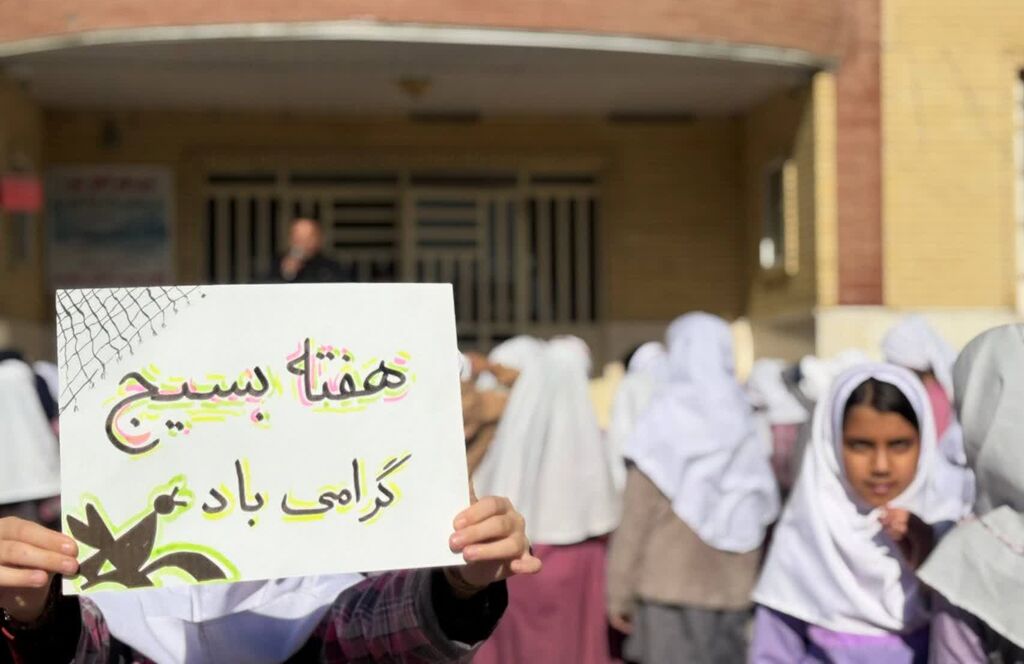 هفته بسیج
گرامی باد